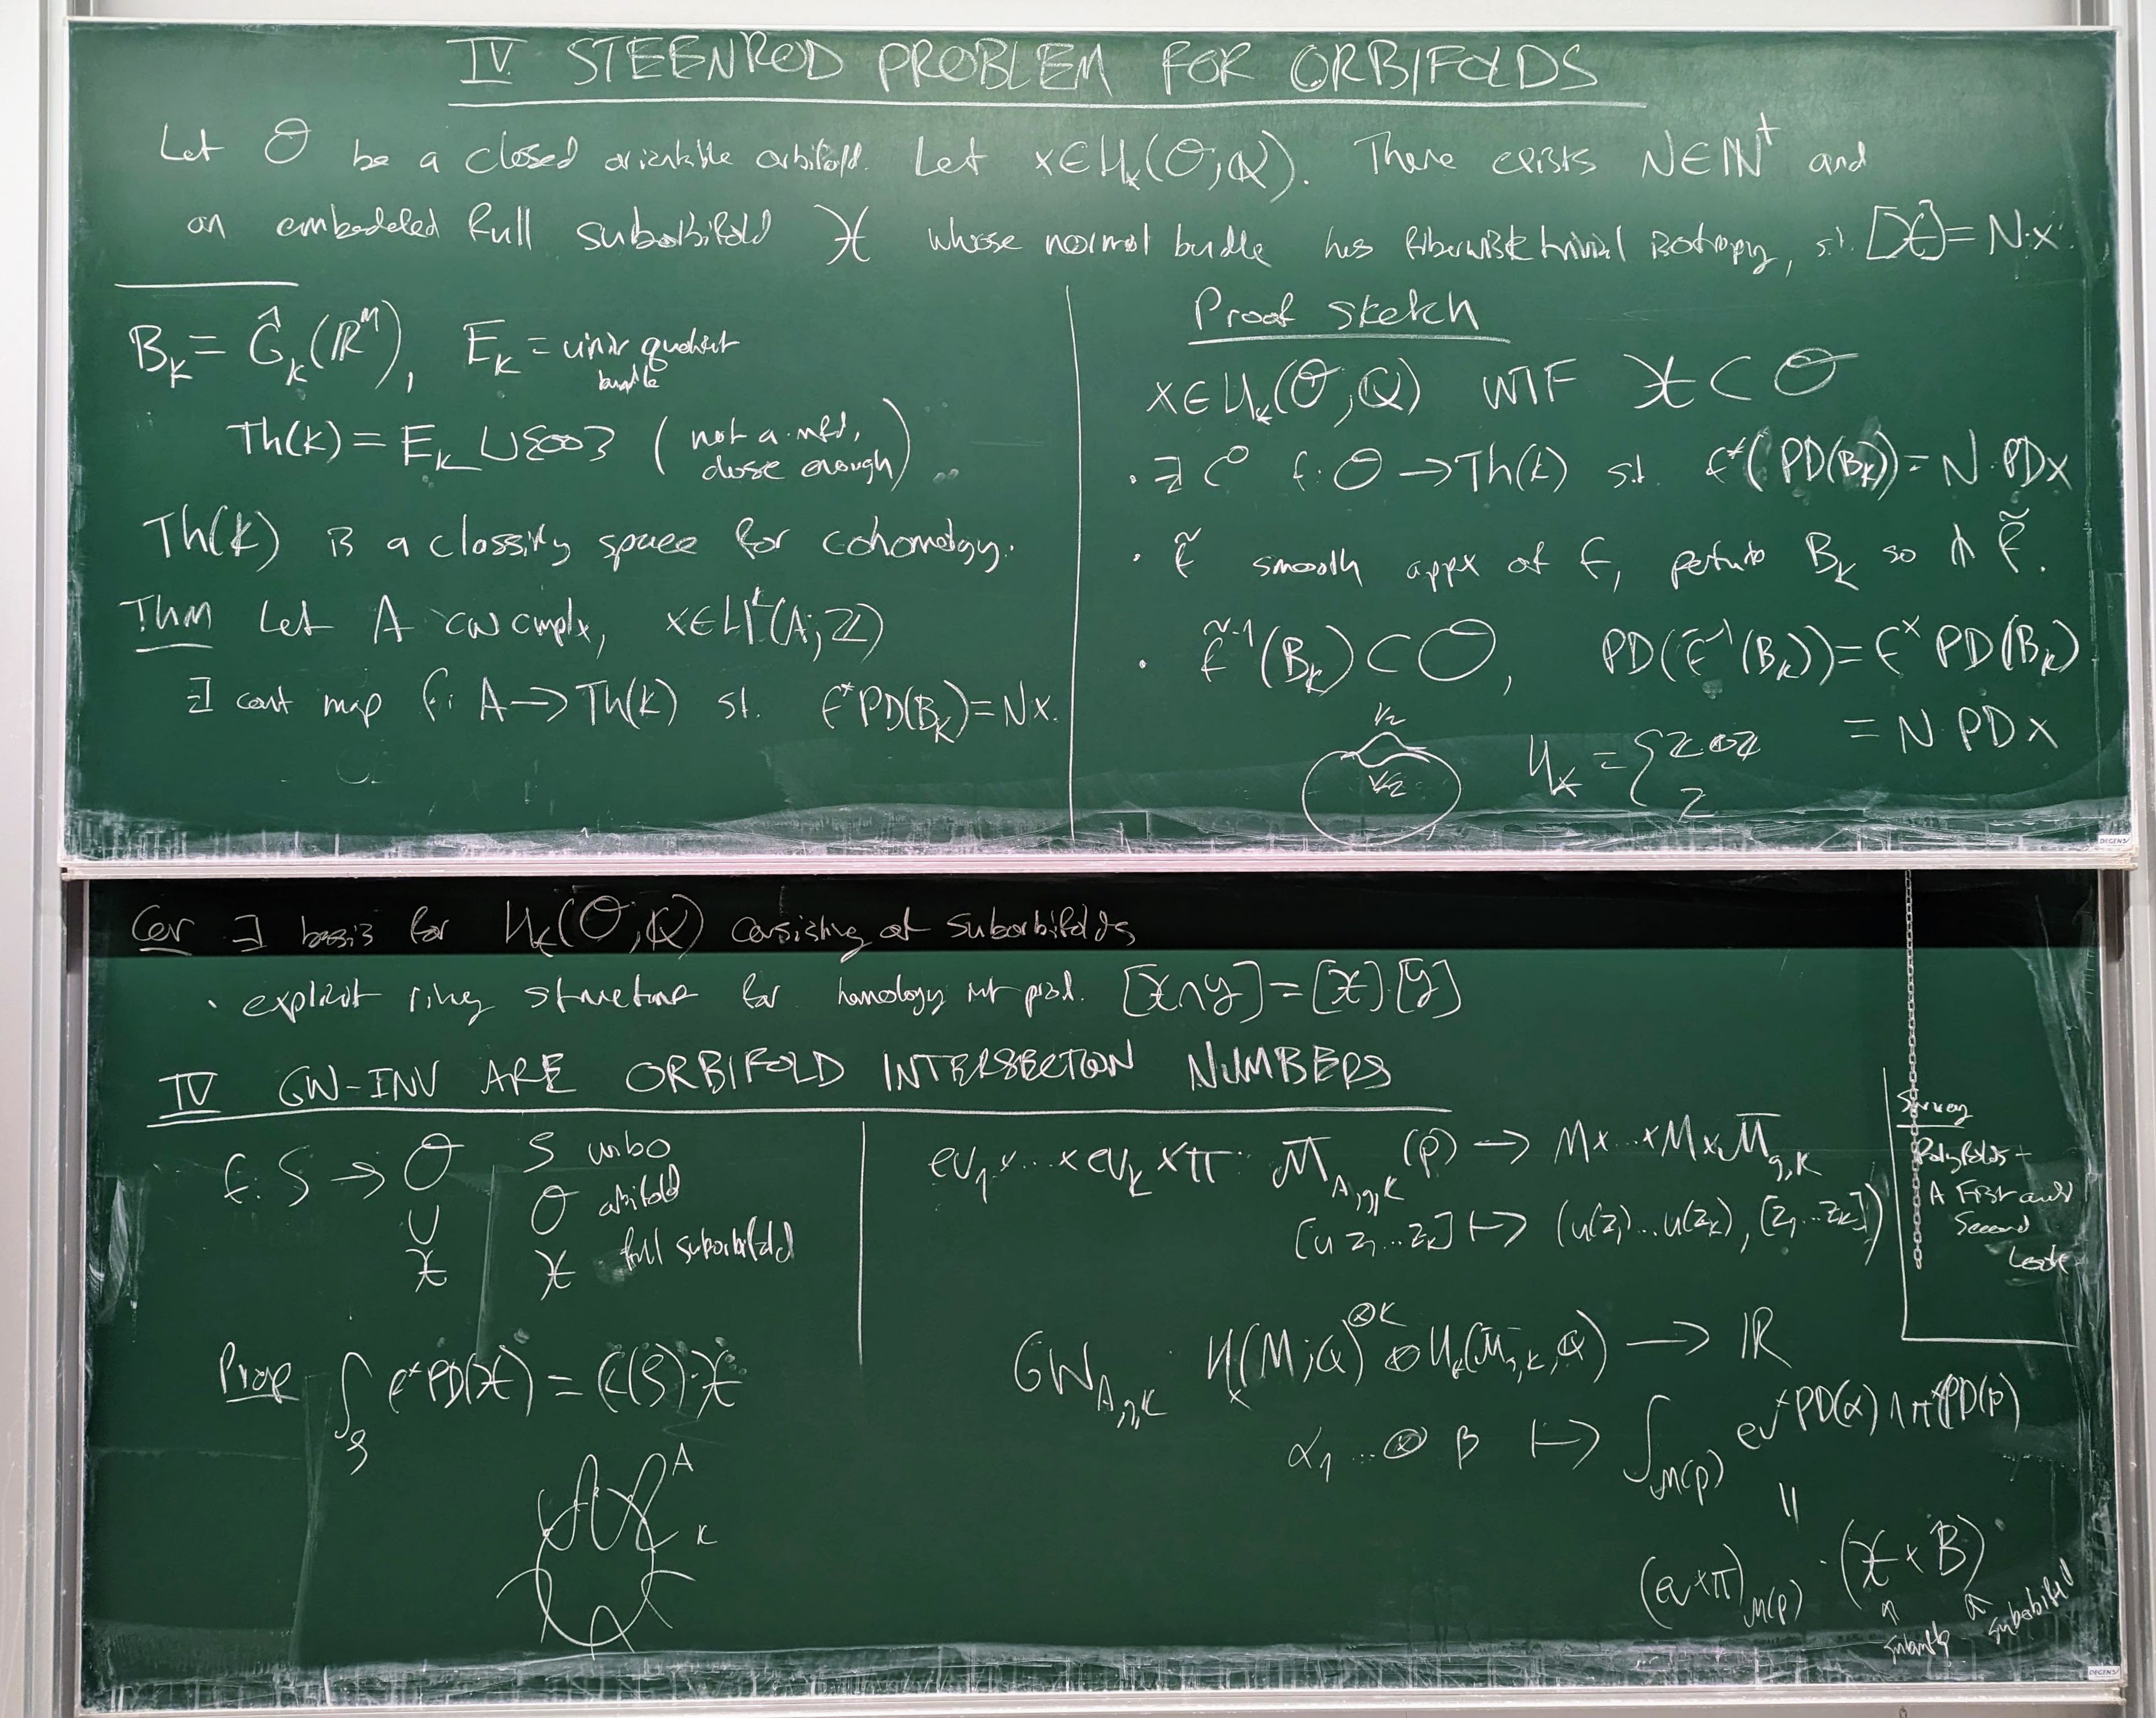 IV STEENROD PROBLEM FOR ORBIFOLDS
Let O be a closed orientable orbifold. Let x∈H_k(O;Q). There exists N∈ℕ⁺ and
an embedded full suborbifold X whose normal bundle has fiberwise trivial isotropy, s.t. [X]=N·x.
B_k = Ĝ_k(ℝ^m), E_k = univ quotient
bundle
Th(k) = E_k ∪ {∞} (not a mfd,
close enough)
Th(k) is a classify space for cohomology.
Thm Let A CW cmplx, x∈H^k(A;Z)
∃ cont map f: A→Th(k) st. f*PD(B_k)=Nx.
Proof sketch
x∈H_k(O;Q) WTF X⊂O
· ∃ C⁰ f: O→Th(k) s.t. f*(PD(B_k))=N·PDx
· f̃ smooth appx of f, perturb B_k so ⋔ f̃.
· f̃⁻¹(B_k)⊂O, PD(f̃⁻¹(B_k))=f*PD(B_k)
= N·PD x
Cor ∃ basis for H_k(O;Q) consisting of suborbifolds
· explicit ring structure for homology int prod. [X∩Y]=[X]·[Y]
IV GW-INV ARE ORBIFOLD INTERSECTION NUMBERS
f: S → O S wnbo
∪ O orbifold
X X full suborbifold
Prop ∫_S f*PD(X) = f(S)·X
A
K
ev_1×...×ev_k×π: M̄_{A,g,k}(p) → M×...×M×M̄_{g,k}
[u z_1...z_k] ↦ (u(z_1)...u(z_k),[z_1...z_k])
GW_{A,g,k} : H_*(M;Q)^{⊗k}⊗H_*(M̄_{g,k},Q) → ℝ
α_1...⊗β ↦ ∫_{M(p)} ev*PD(α)∧π*PD(β)
=
(ev×π)_{M(p)}·(X×B)
↑ ↑
submfld suborbifold
Survey
Polyfolds -
A First and
Second
Look
DEGENS
DEGENS